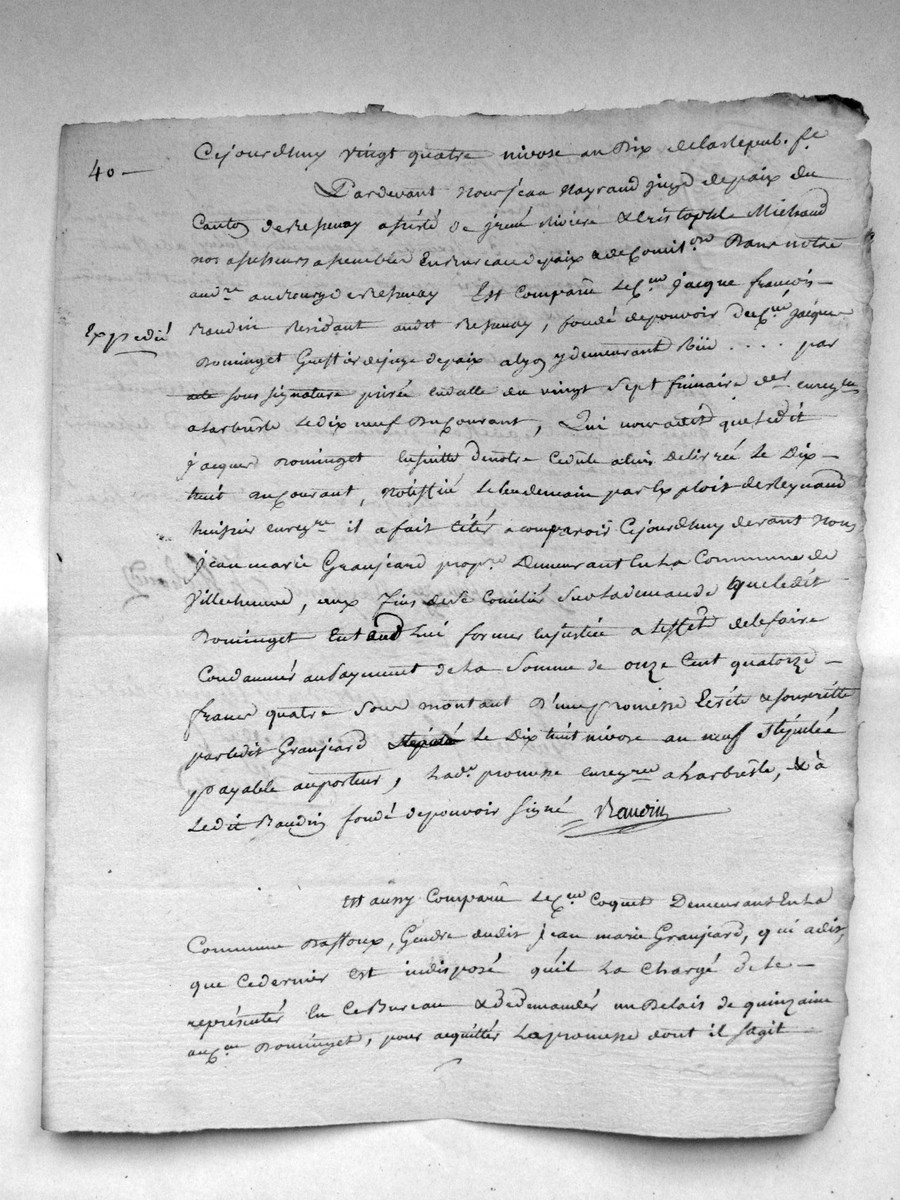 40 —
Cejourdhuy vingt quatre nivose an Dix de la Repub. fe
Pardevant Nous jean Mayraud juge de paix du
Canton de assisté de rené Riviere & cristophle Michaud
nos assesseurs assemblés en Bureau de paix & de Concil.on Dans notre
audre au Bourg de Est Comparû Le Cen jacque françois
Expedié
Baudin Residant audit , fondé de pouvoir du Cen jacque
Dominget Greffier de juge de paix a lyon y demeurant Rüe . . . . par
acte sous signature privée en datte du vingt Sept frimaire der enregre
a Larbresle Le dix neuf Du Courant, Qui nous a dit que ledit
jacque Dominget ensuitte de notre Cedule a lui Delivrée Le Dix
huit au Courant, Notiffiée Le lendemain par Exploit de Reynaud
huissier enregre il a fait Citér a comparoir Cejourdhuy devant Nous
jean marie Granjeard propre Demeurant En La Commune de
Villecheneve, aux fins de se Conciliér Sur la demande que ledit
Dominget Entend Lui former en justice a Leffet de le faire
Condamnér au payment de La Somme de onze Cent quatorze
franc quatre Sous montant D'une promesse Ecrite & souscritte
par ledit Granjeard Le Dix huit nivose an neuf Stipulée
payable au porteur, Lade promesse enregre a Larbresle, & a
Ledit Baudin fondé de pouvoir Signé Baudin
Est aussy Comparû Le Cen Coquet Demeurant En La
Commune Daffoux, Gendre dudit jean marie Granjeard, qui a dit,
que ce dernier Est indisposé qu'il La Chargé de le
representér En Ce Bureau & de demandér un Delais de quinzaine
au Cen Dominget, pour acquittér La promesse dont il Sagit